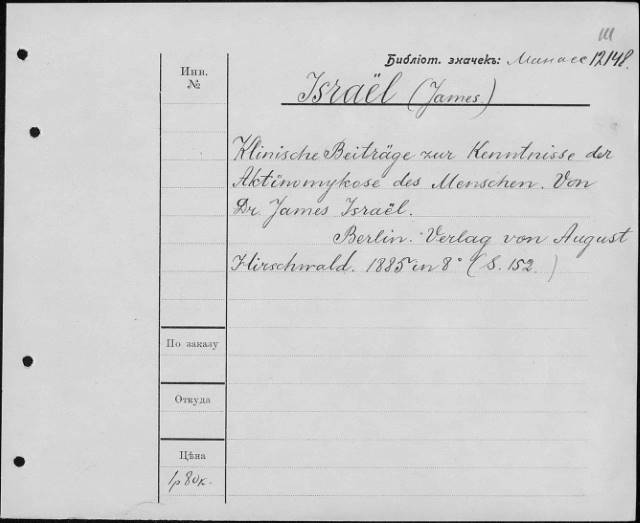 Ш
Библіот. значекъ: Манасс 12148.
Инв.
№
Israël (James.)
Klinische Beiträge zur Kenntnisse der
Aktinomykose des Menschen. Von
Dr. James Israël.
Berlin. Verlag von August
Hirschwald. 1885 in 8° (S. 152.)
По заказу
Откуда
Цѣна
1р 80к.